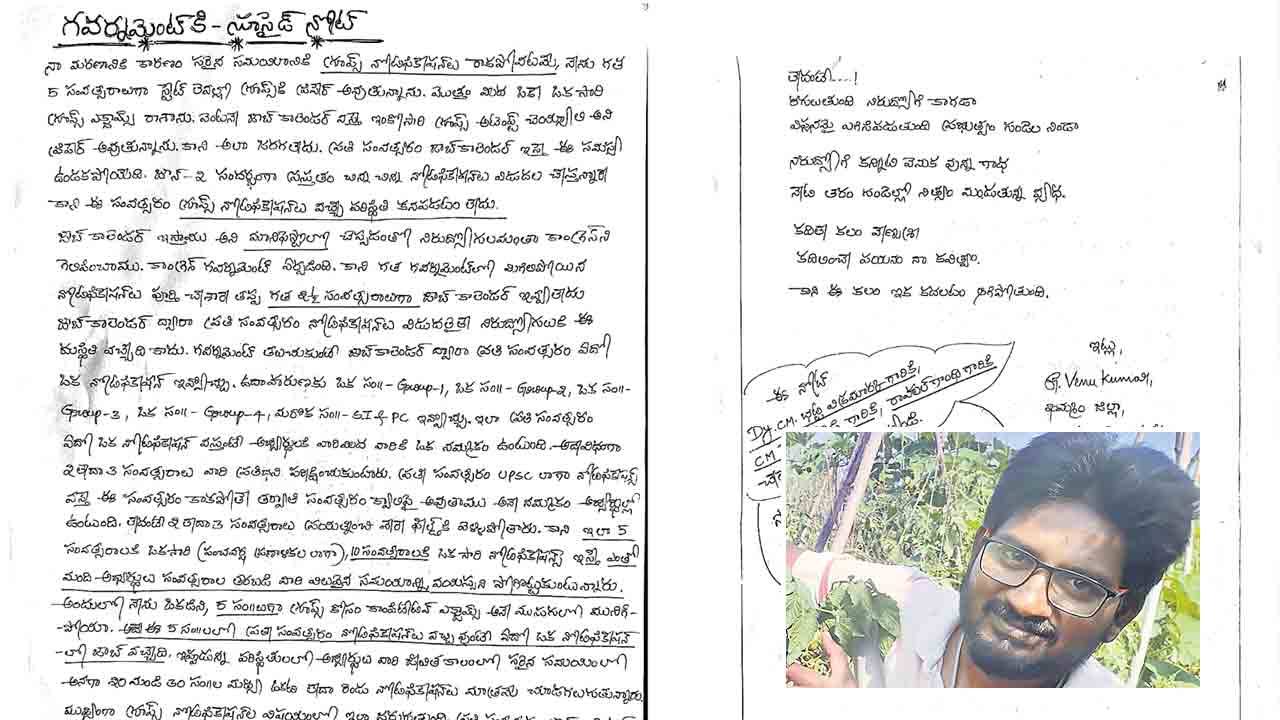 గవర్నమెంట్‌కి - సూసైడ్ నోట్
నా మరణానికి కారణం సరైన సమయానికి గ్రూప్స్ నోటిఫికేషన్‌లు రాకపోవటమే, నేను గత
5 సంవత్సరాలుగా స్టేట్ లెవల్లో గ్రూప్స్‌కి ప్రిపేర్ అవుతున్నాను. మొత్తం మీద ఒకే ఒకసారి
గ్రూప్స్ ఎగ్జామ్స్ రాశాను. వెంటనే జాబ్ కాలెండర్ వస్తే, ఇంకోసారి గ్రూప్స్ అటెంప్ట్ చెయ్యాలి అని
ప్రిపేర్ అవుతున్నాను. కాని అలా జరగలేదు. ప్రతి సంవత్సరం జాబ్ కాలెండర్ ఇస్తే ఈ సమస్య
ఉండకపోయేది. జూన్-2 సందర్భంగా ప్రస్తుతం చిన్న చిన్న నోటిఫికేషన్‌లు విడుదల చేస్తున్నారు
కాని ఈ సంవత్సరం గ్రూప్స్ నోటిఫికేషన్‌లు వచ్చే పరిస్థితి కనపడటం లేదు.
జాబ్ కాలెండర్ ఇస్తాము అని మానిఫెస్టోలో చెప్పడంతో నిరుద్యోగులమంతా కాంగ్రెస్‌ని
గెలిపించాము. కాంగ్రెస్ గవర్నమెంట్ ఏర్పడింది. కాని గత గవర్నమెంట్‌లో మిగిలిపోయిన
నోటిఫికేషన్‌లు పూర్తి చేశారే తప్ప గత 2½ సంవత్సరాలుగా జాబ్ కాలెండర్ ఇవ్వలేదు
జాబ్ కాలెండర్ ద్వారా ప్రతి సంవత్సరం నోటిఫికేషన్‌లు విడుదలైతే నిరుద్యోగులకి ఈ
దుస్థితి వచ్చేది కాదు. గవర్నమెంట్ తలచుకుంటే జాబ్ కాలెండర్ ద్వారా ప్రతి సంవత్సరం ఏదో
ఒక నోటిఫికేషన్ ఇవ్వొచ్చు. ఉదాహరణకు ఒక సం॥- Group-1, ఒక సం॥- Group-2, ఒక సం॥-
Group-3, ఒక సం॥- Group-4, మరొక సం॥- SI & PC ఇవ్వొచ్చు. ఇలా ప్రతి సంవత్సరం
ఏదో ఒక నోటిఫికేషన్ వస్తుంటే అభ్యర్థులకి వారిమీద వారికి ఒక నమ్మకం ఉంటుంది. అదేవిధంగా
2 లేదా 3 సంవత్సరాలు వారి ప్రతిభని పరీక్షించుకుంటారు. ప్రతి సంవత్సరం UPSC లాగా నోటిఫికేషన్స్
వస్తే ఈ సంవత్సరం కాకపోతే తర్వాత సంవత్సరం క్వాలిఫై అవుతాము అనే నమ్మకం అభ్యర్థుల్లో
ఉంటుంది. లేదంటే 2 లేదా 3 సంవత్సరాలు ప్రయత్నించి వెళ్ళిపోతారు. కాని ఇలా 5
సంవత్సరాలకి ఒకసారి (పంచవర్ష ప్రణాళికల లాగా), 10 సంవత్సరాలకి ఒకసారి నోటిఫికేషన్స్ ఇస్తే ఎంతో
మంది అభ్యర్థులు సంవత్సరాల తరబడి వారి విలువైన సమయాన్ని, వయస్సుని పోగొట్టుకుంటున్నారు.
అందులో నేను ఒకడిని, 5 సం॥లుగా గ్రూప్స్ కోసం కాంపిటేటివ్ ఎగ్జామ్స్ అనే ముసుగులో మునిగి-
పోయా. ఈ 5 సం॥లలో ప్రతి సంవత్సరం నోటిఫికేషన్‌లు వచ్చి వుంటే ఏదో ఒక నోటిఫికేషన్
-లో జాబ్ వచ్చేది. ఇప్పుడున్న పరిస్థితులలో అభ్యర్థులు వారి జీవిత కాలంలో సరైన సమయంలో
అనగా 20 నుండి 30 సం॥ల మధ్య ఒకటి లేదా రెండు నోటిఫికేషన్‌లు మాత్రమే చూడగలుగుతున్నారు.
ముఖ్యంగా గ్రూప్స్ నోటిఫికేషన్‌ల విషయంలో ఇలా జరుగుతుంది.
లేదంటే....!
రగులుతుంది నిరుద్యోగి కాగడా
విప్లవమై ఎగిసిపడుతుంది ప్రభుత్వం గుండెల నిండా
నిరుద్యోగి కన్నీటి వెనుక వున్న గాధ
నేటి తరం గుండెల్లో నిత్యం మ్రోగుతున్న వ్యధ.
కవితై కలం
కదిలించే పయనం నా కవిత్వం.
కాని ఈ కలం ఇక కదలటం ఆగిపోతుంది.
ఇట్లు,
Venu Kumar,
ఖమ్మం జిల్లా,
ఈ నోట్
Dy. CM. భట్టి విక్రమార్క గారికి,
CM గారికి, రాహుల్ గాంధీ గారికి